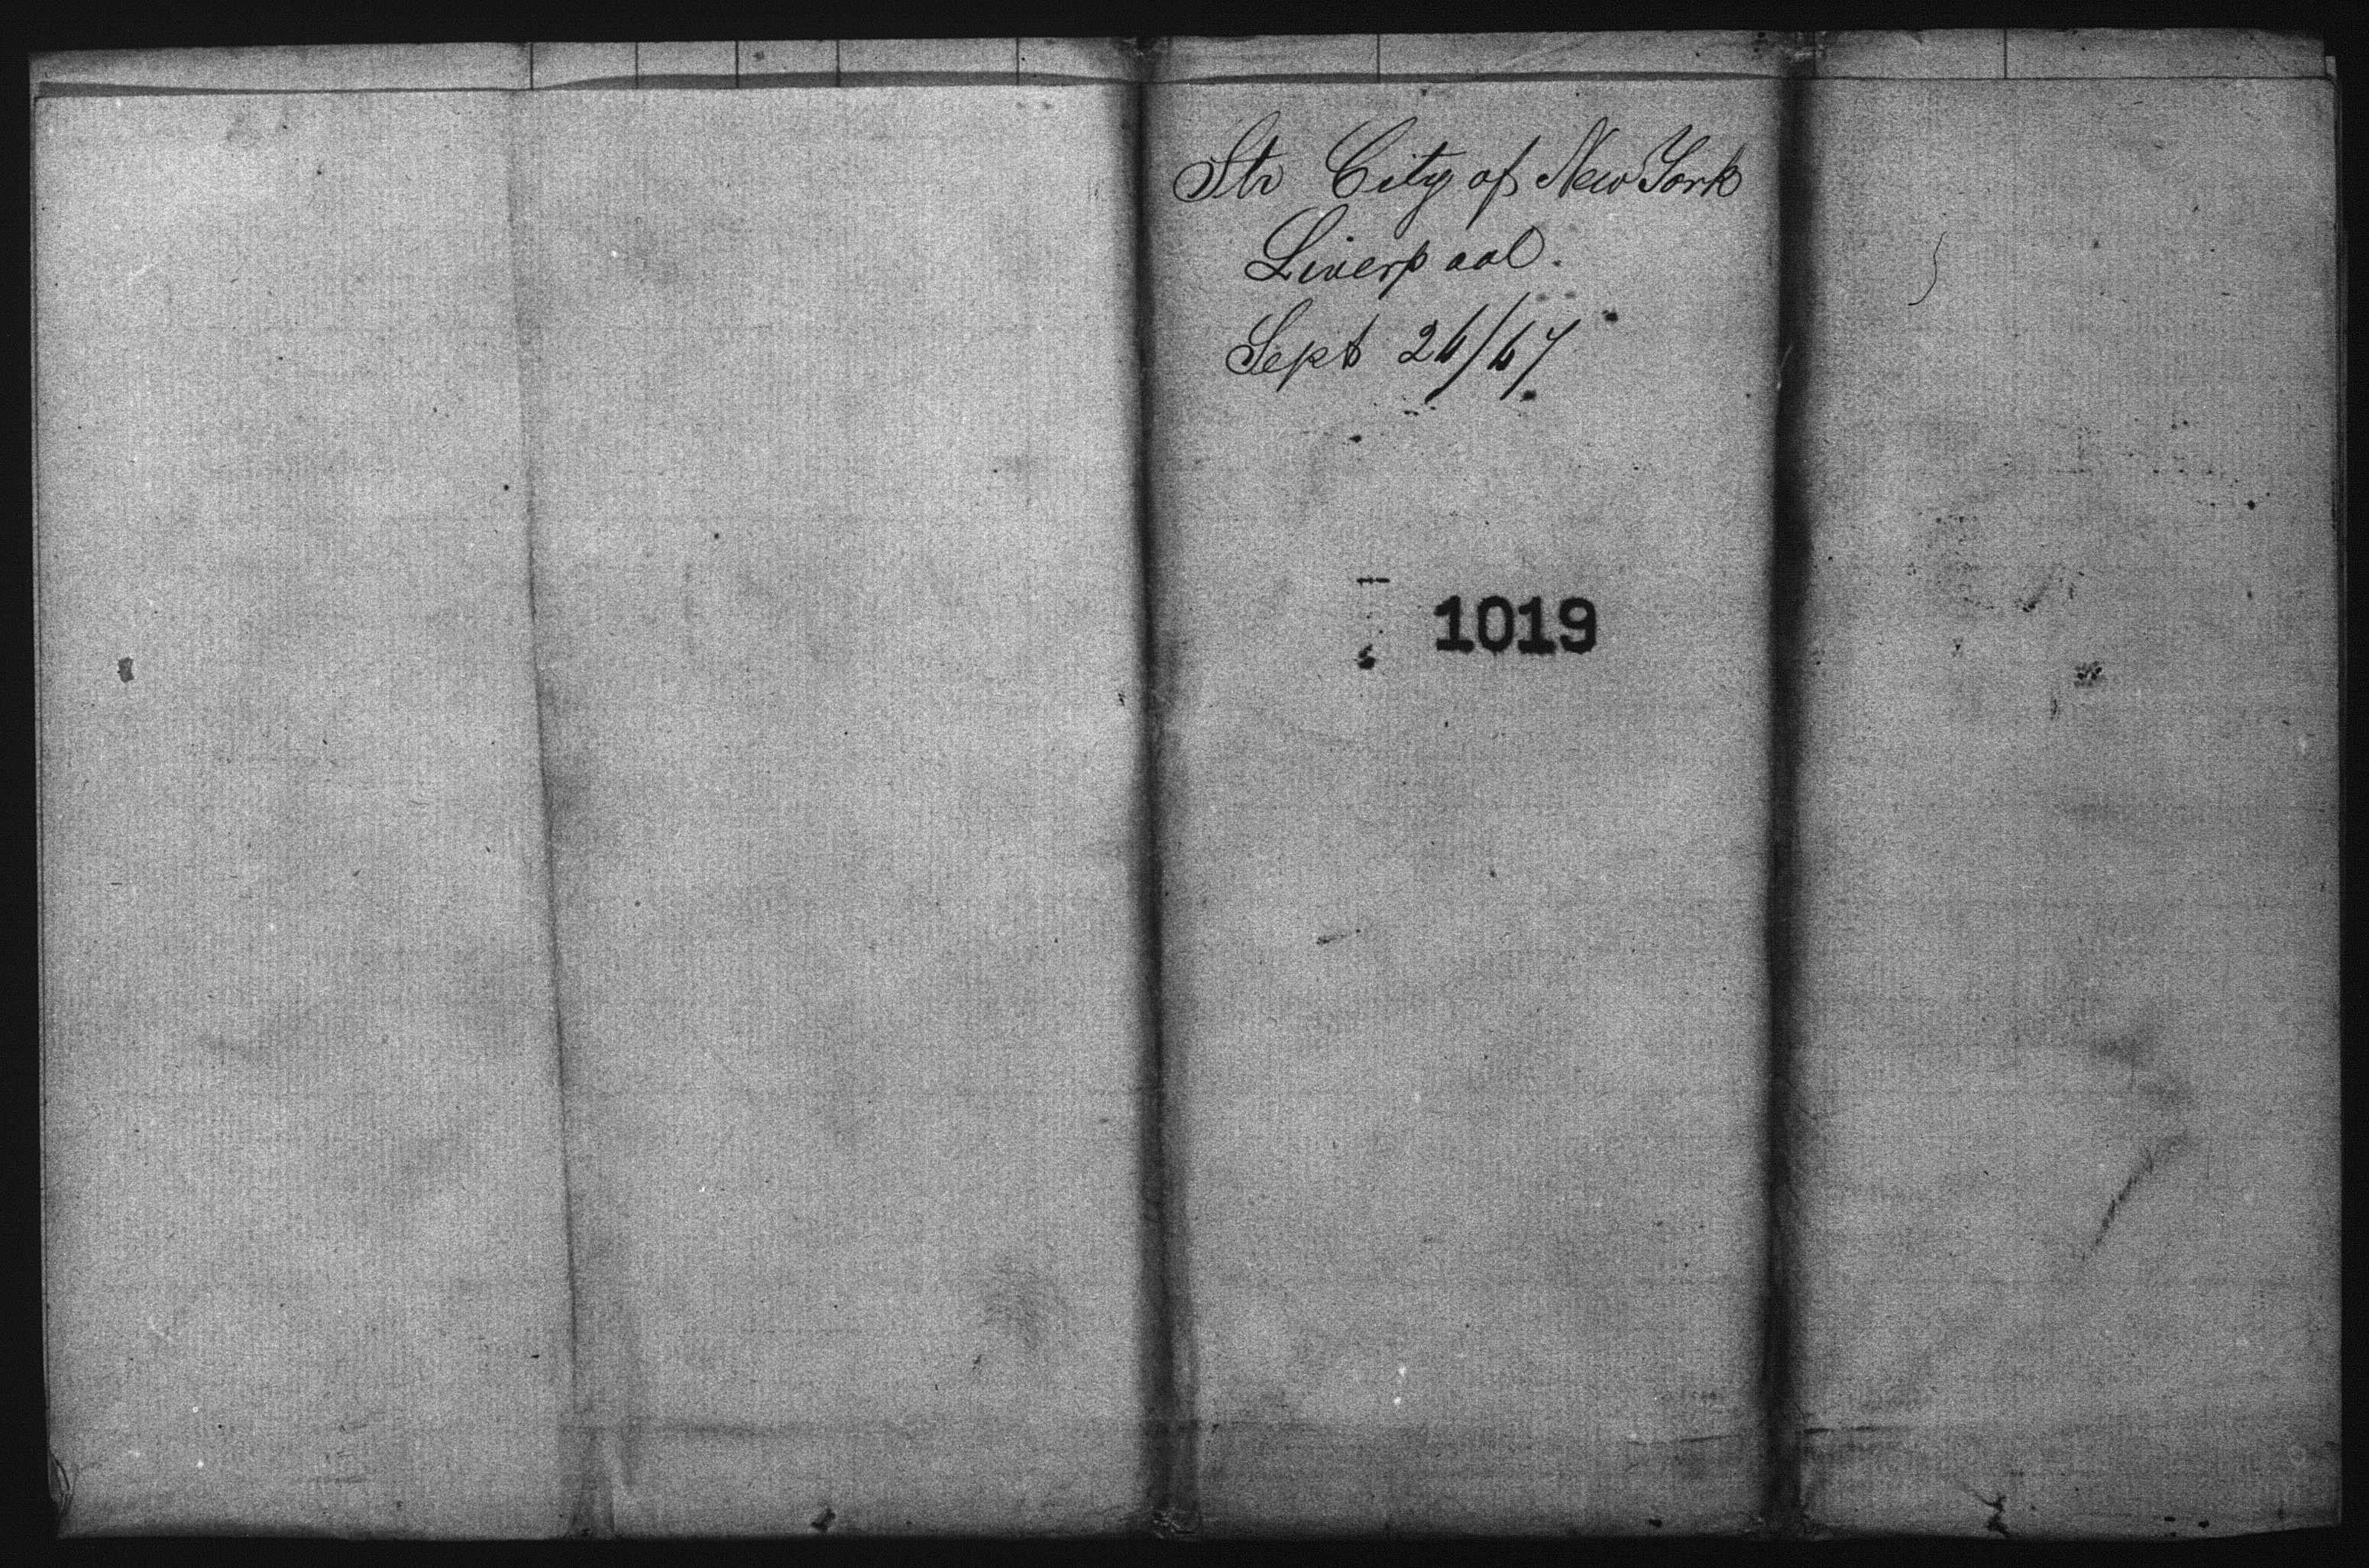 Str City of New York
Liverpool.
Sept 26/67
1019